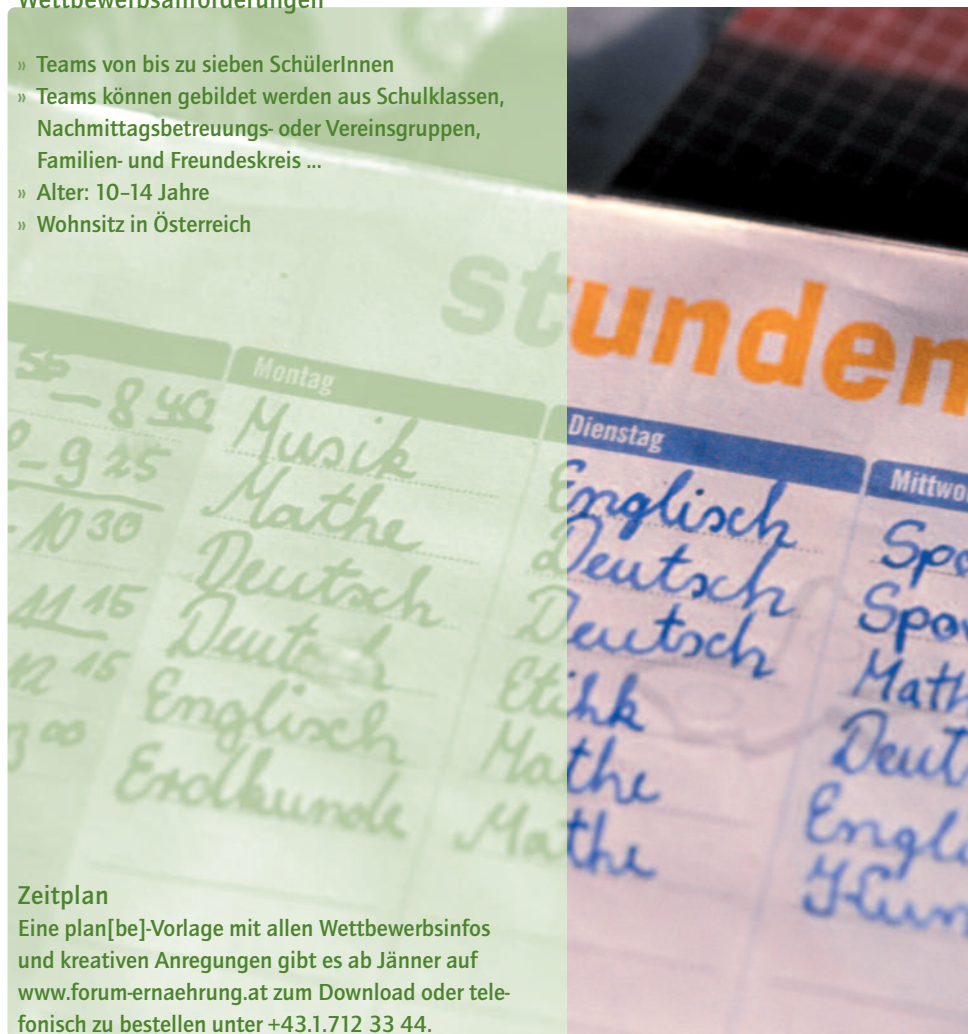 Wettbewerbsanforderungen
» Teams von bis zu sieben SchülerInnen
» Teams können gebildet werden aus Schulklassen,
Nachmittagsbetreuungs- oder Vereinsgruppen,
Familien- und Freundeskreis ...
» Alter: 10–14 Jahre
» Wohnsitz in Österreich
stunden
Montag Dienstag Mittwo
55 – 8 40 Musik Englisch Spo
– 9 25 Mathe Deutsch Spo
- 10 30 Deutsch Deutsch Math
11 15 Deutsch Etihk Deut
12 15 Englisch Mathe Engli
00 Erdkunde Mathe Kun
Zeitplan
Eine plan[be]-Vorlage mit allen Wettbewerbsinfos
und kreativen Anregungen gibt es ab Jänner auf
www.forum-ernaehrung.at zum Download oder tele-
fonisch zu bestellen unter +43.1.712 33 44.